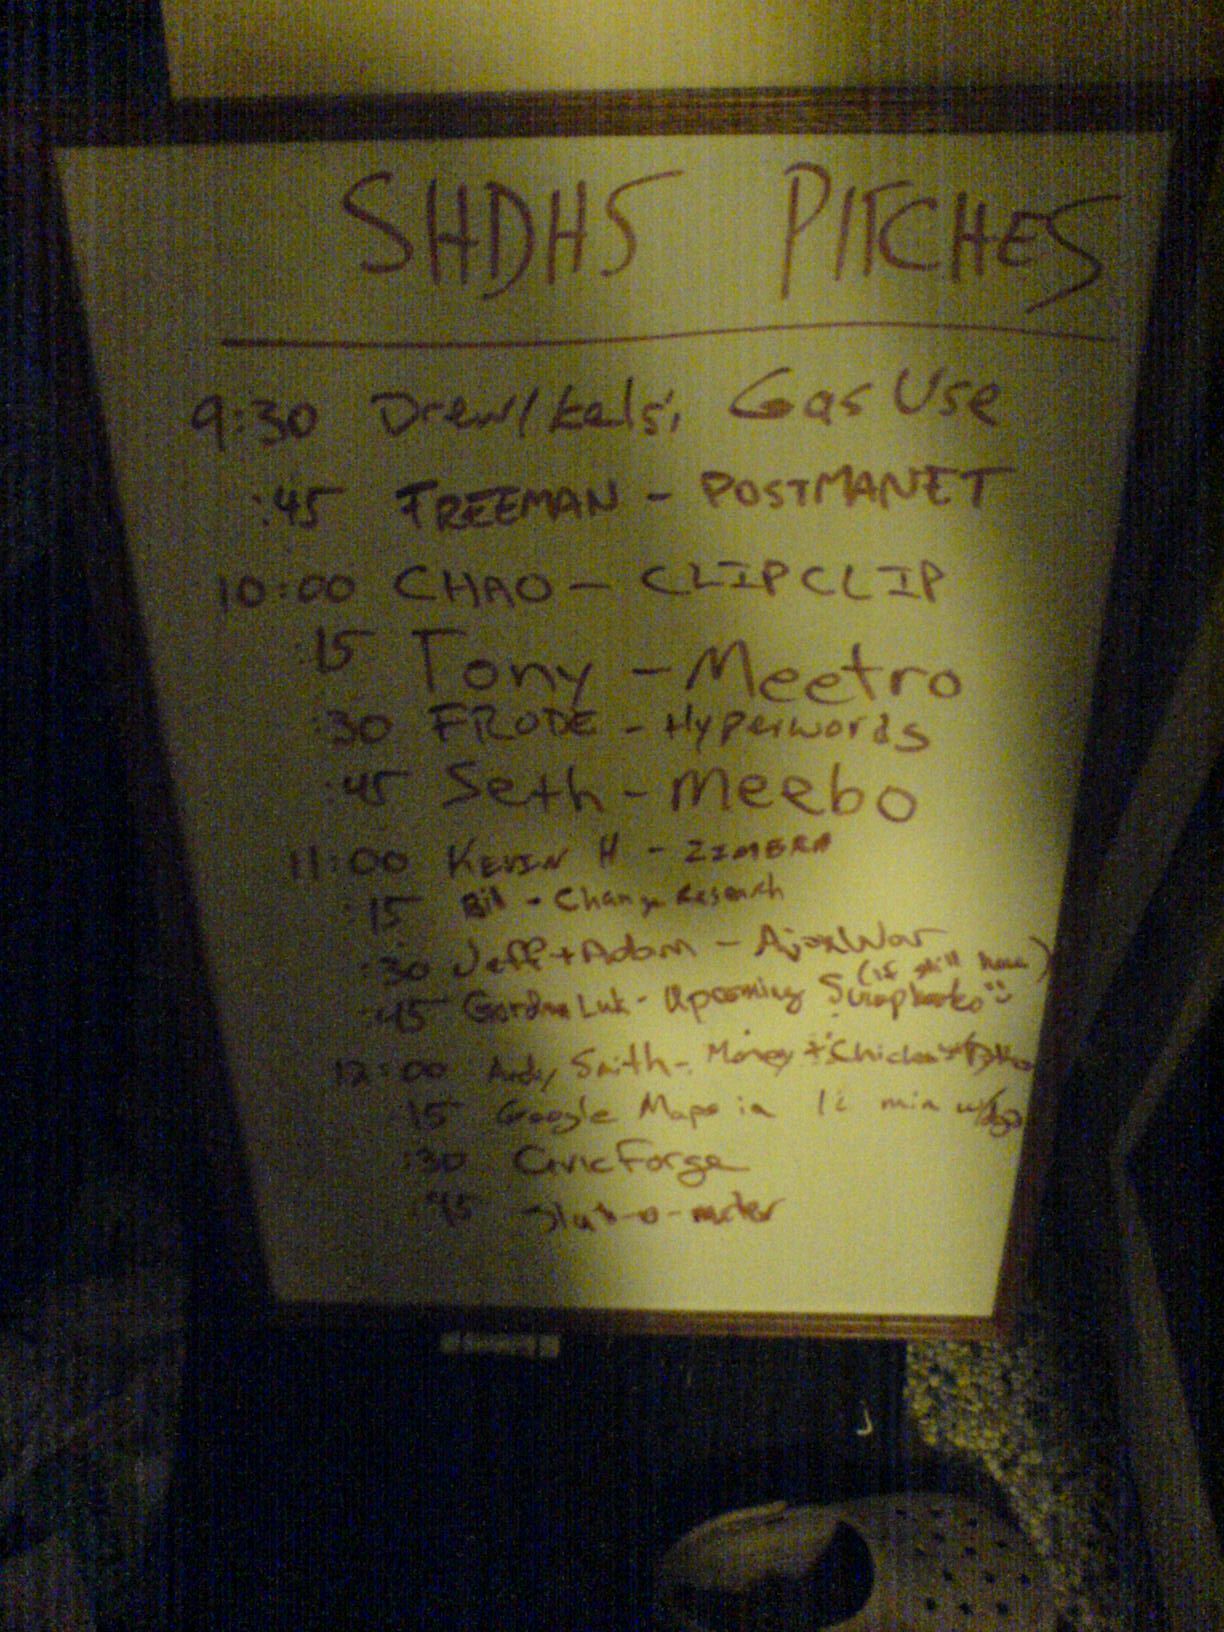 SHDH5 PITCHES
9:30 Drew/kelsi, Gas Use
:45 FREEMAN - POSTMANET
10:00 CHAO - CLIPCLIP
:15 Tony - Meetro
:30 FRODE - Hyperwords
:45 Seth - Meebo
11:00 KEVIN H - ZIMBRA
:15 Bill - Change Research
:30 Jeff + Adam - AjaxWar
(if still here)
:45 Gordon Luk - Upcoming
12:00 Andy Smith - Money + Chicken
15 Google Maps in min
:30 CivicForge
:45